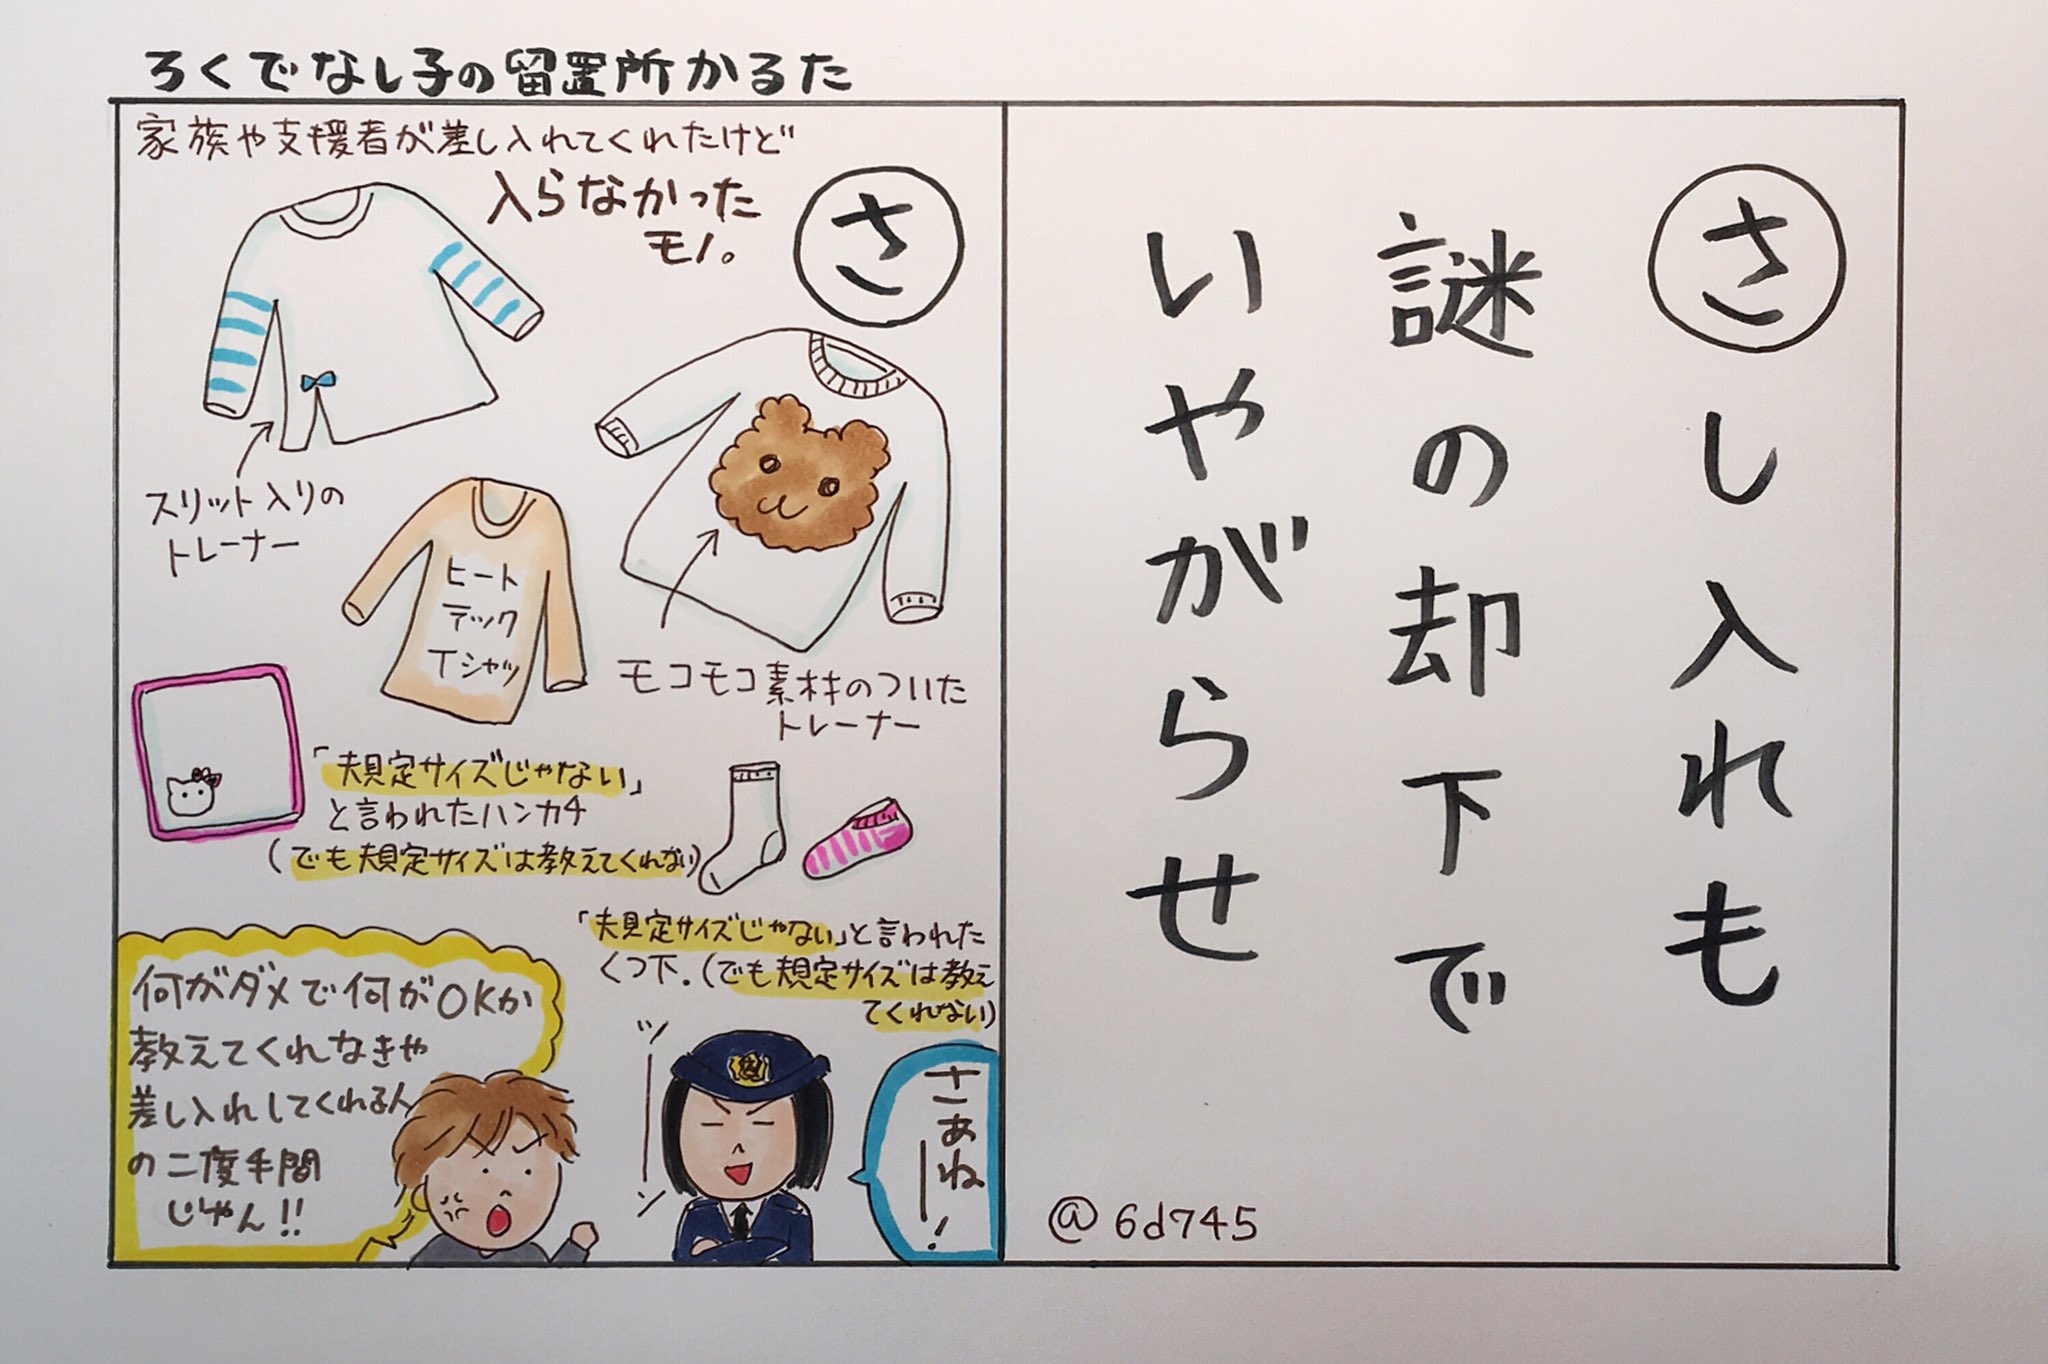 ろくでなし子の留置所かるた
家族や支援者が差し入れてくれたけど
入らなかった
モノ。
さ
スリット入りの
トレーナー
ヒート
テック
Tシャツ
モコモコ素材のついた
トレーナー
「規定サイズじゃない」
と言われたハンカチ
(でも規定サイズは教えてくれない)
「規定サイズじゃない」と言われた
くつ下.(でも規定サイズは教え
てくれない)
何がダメで何がOKか
教えてくれなきゃ
差し入れしてくれる人
の二度手間
じゃん!!
ツーン
さあねー!
さし入れも
謎の却下で
いやがらせ
@6d745